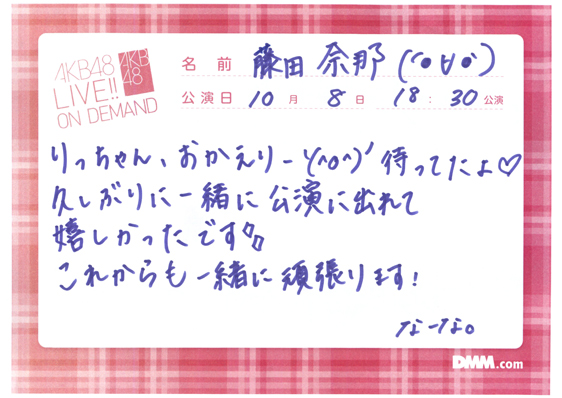 AKB48
LIVE!!
ON DEMAND
AKB
48
名前 藤田 奈那 (*´●∀●`)
公演日 10月 8日 18:30公演
りっちゃん、おかえりーヽ(^o^)ノ 待ってたよ♡
久しぶりに一緒に公演に出れて
嬉しかったです
これからも一緒に頑張ります!
なーな。
DMM.com